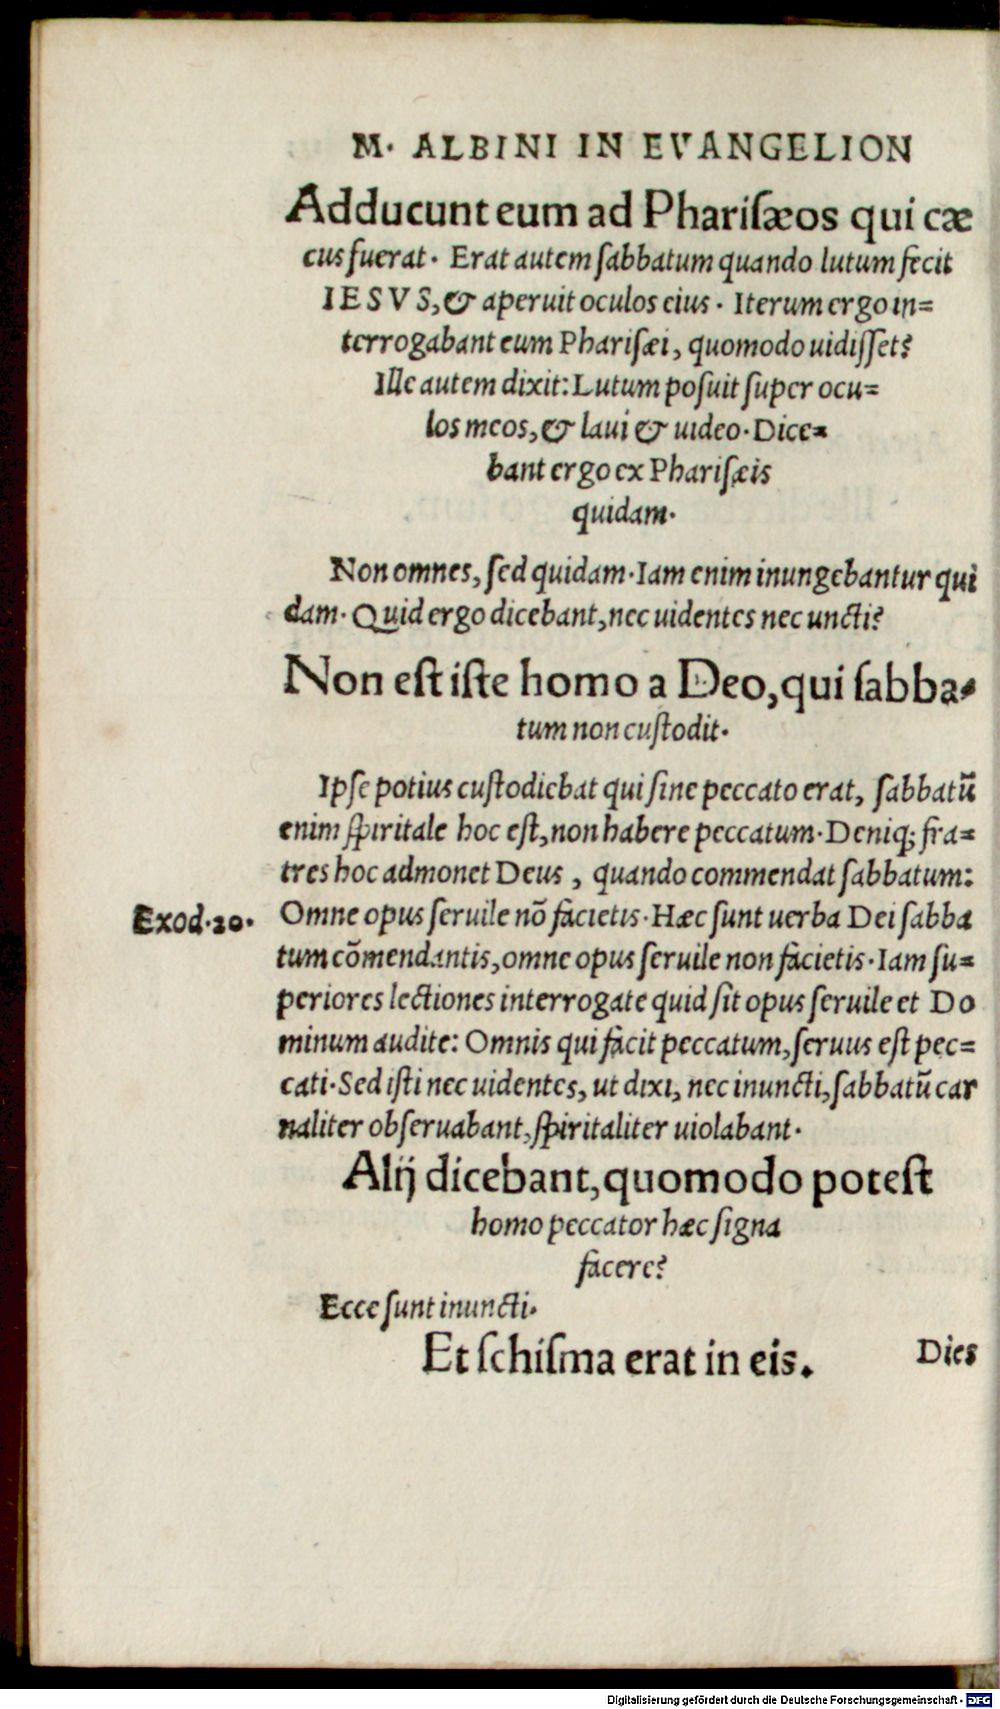 M. ALBINI IN EVANGELION
Adducunt eum ad Phariſæos qui cæ
cus fuerat. Erat autem ſabbatum quando lutum fecit
IESVS, & aperuit oculos eius. Iterum ergo in=
terrogabant eum Phariſæi, quomodo uidiſſet?
Ille autem dixit: Lutum poſuit ſuper ocu=
los meos, & laui & uideo. Dice=
bant ergo ex Phariſæis
quidam.
Non omnes, ſed quidam. Iam enim inungebantur qui
dam. Quid ergo dicebant, nec uidentes nec uncti?
Non eſt iſte homo a Deo, qui ſabba=
tum non cuſtodit.
Ipſe potius cuſtodiebat qui ſine peccato erat, ſabbatū
enim ſpiritale hoc eſt, non habere peccatum. Deniq; fra=
tres hoc admonet Deus, quando commendat ſabbatum:
Exod. 20.
Omne opus ſeruile nō facietis. Hæc ſunt uerba Dei ſabba
tum cōmendantis, omne opus ſeruile non facietis. Iam ſu=
periores lectiones interrogate quid ſit opus ſeruile et Do
minum audite: Omnis qui facit peccatum, ſeruus eſt pec=
cati. Sed iſti nec uidentes, ut dixi, nec inuncti, ſabbatū car
naliter obſeruabant, ſpiritaliter uiolabant.
Alij dicebant, quomodo poteſt
homo peccator hæc ſigna
facere?
Ecce ſunt inuncti.
Et ſchiſma erat in eis.
Dies
Digitalisierung gefördert durch die Deutsche Forschungsgemeinschaft - DFG